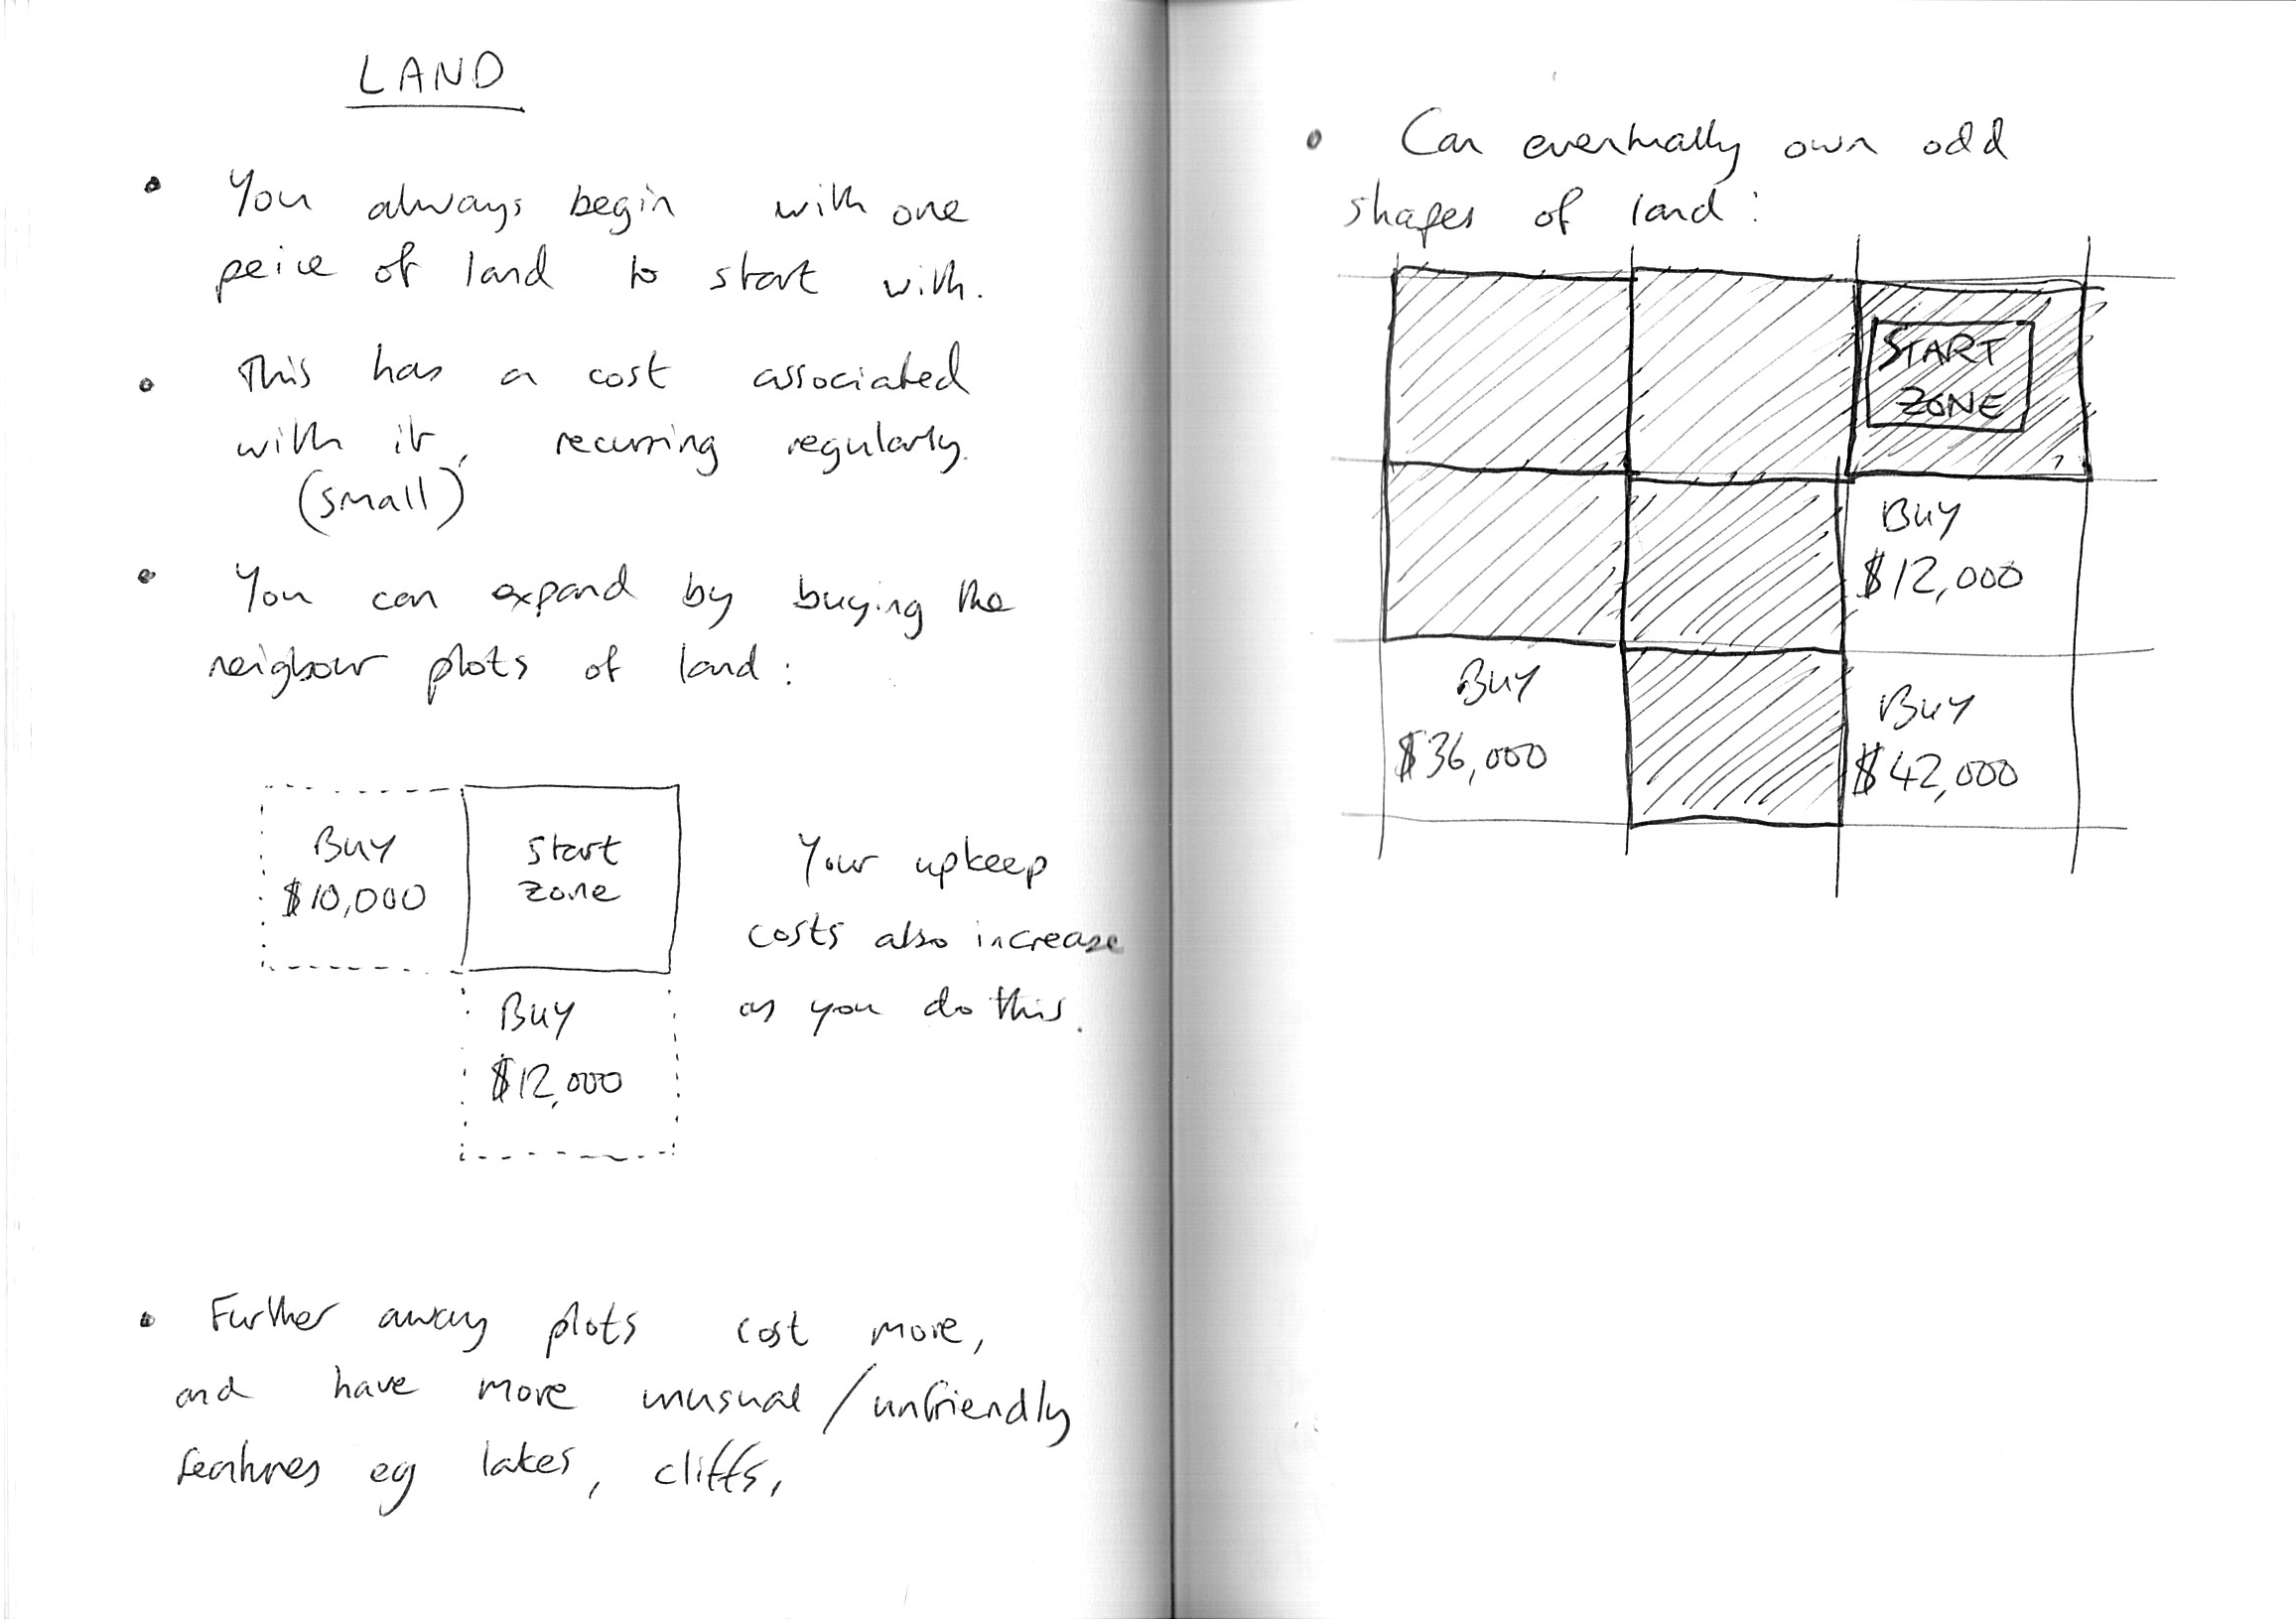 LAND
• You always begin with one
peice of land to start with.
• This has a cost associated
with it, recurring regularly.
(small)
• You can expand by buying the
neigbour plots of land:
Buy
$10,000
Start
zone
Buy
$12,000
Your upkeep
costs also increase
as you do this.
• Further away plots cost more,
and have more unusual/unfriendly
features eg lakes, cliffs,
• Can eventually own odd
shapes of land:
START
ZONE
Buy
$12,000
Buy
$36,000
Buy
$42,000